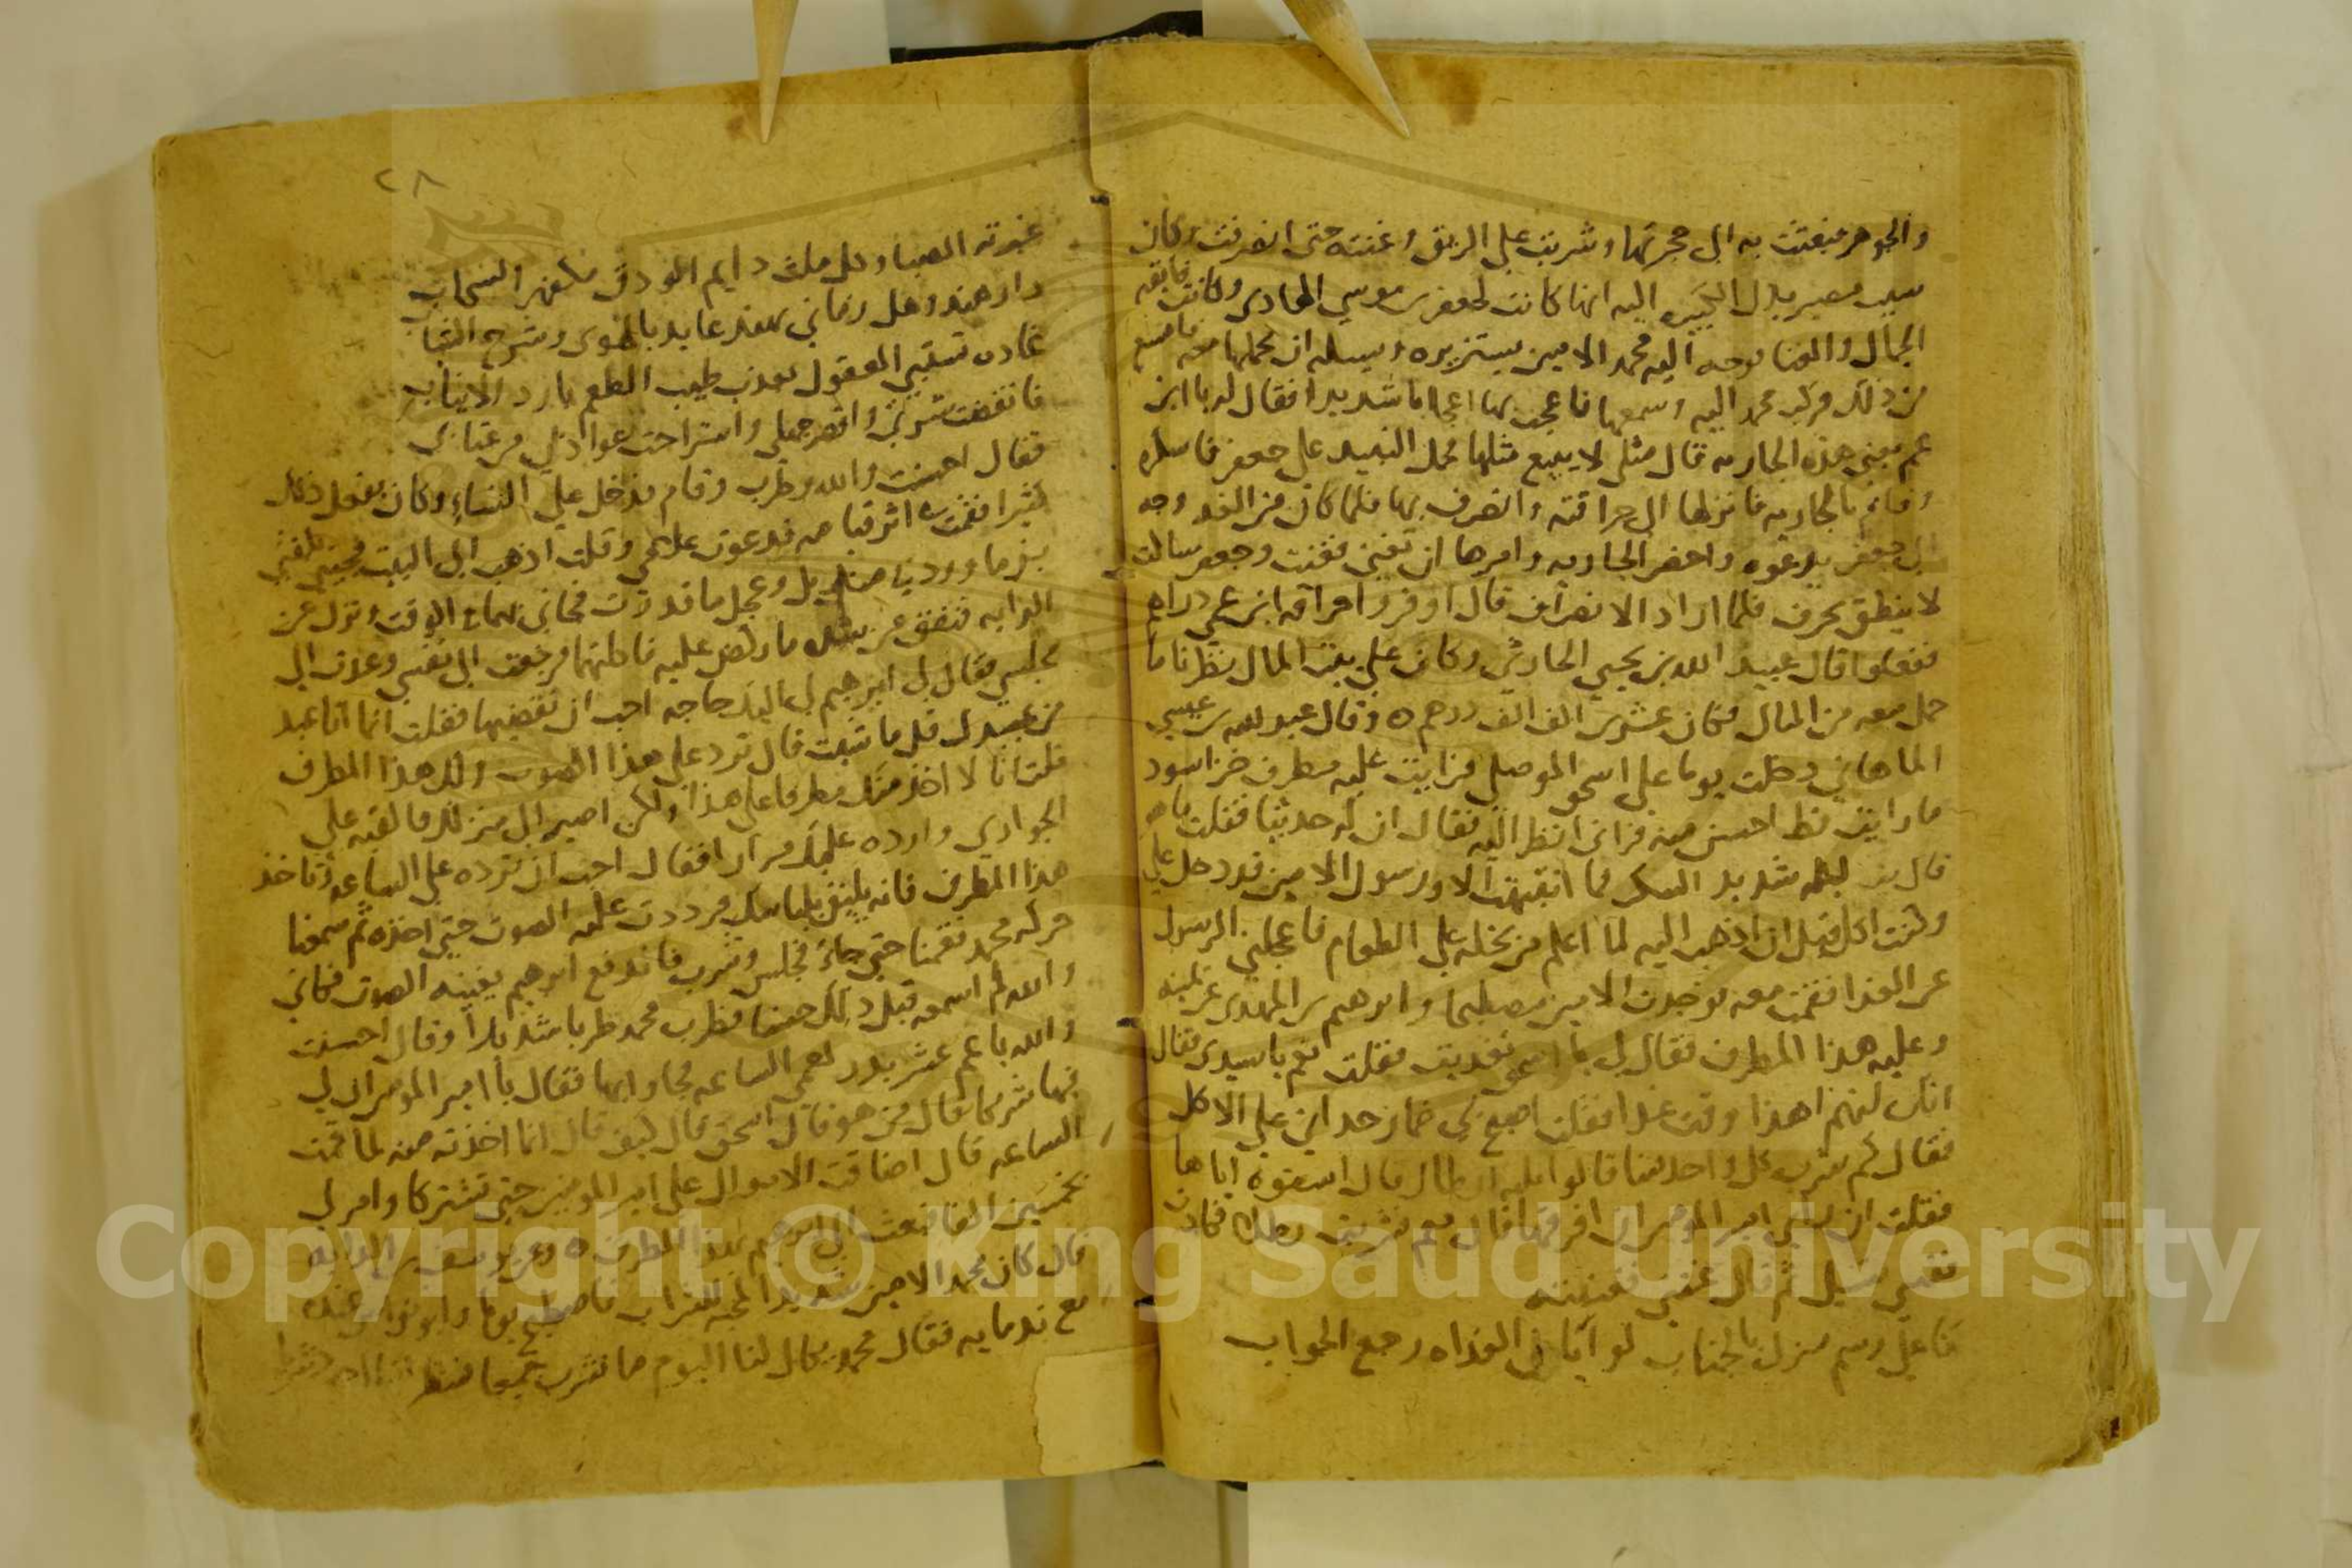 والجوهر فبعثت به الى حجرتها وشربت على الريق وغنته حتى انصرفت وكان
سبب مصير بذل الكبيره اليه انها كانت لجعفر بن موسى الهادى وكانت فايقه
الجمال والغنا فوجه اليه محمد الامين يستزيره ويسله ان يحملها معه فامتنع
من ذلك فركب محمد اليه وسمعها فاعجب بها اعجابا شديدا فقال له يا ابن
عم بعنى هذه الجاريه قال مثلى لا يبيع مثلها فحمل النبيذ على جعفر فاسكره
وقام بالجاريه فانزلها الى حراقته وانصرف بها فلما كان من الغد وجه
الى جعفر يدعوه واحضر الجاريه وامرها ان تغنى فغنت وجعفر ساكت
لا ينطق بحرف فلما اراد الانصراف قال اوقروا حراقه ابن عمى دراهم
ففعلوا قال عبيد الله بن يحيى الحارثى وكان على بيت المال نظرنا ما
حمل معه من المال فكان عشرين الف الف درهم ه وقال عبد الله بن عيسى
الماهانى دخلت يوما على اسحق الموصلى فرايت عليه مطرف خز اسود
ما رايت قط احسن منه فرانى انظر اليه فقال ان له حديثا فقلت ما هو
قال بت ليله شديد السكر فما انتبهت الا ورسول الامين قد دخل على
وكنت اكل قبل ان اذهب اليه لما اعلم من بخله على الطعام فاعجلنى الرسول
عن الغذا فقمت معه فوجدت الامين مصطبحا وابرهيم بن المهدى عن يمينه
وعليه هذا المطرف فقال لى يا اسحق تغديت فقلت نعم يا سيدى فقال
انك لنهم اهذا وقت غدا فقلت اصبحت بى خمار حدانى على الاكل
فقال كم شرب كل واحد منا قالوا ثلثه ارطال قال اسقوه اياها
فقلت ان راى امير المومنين ان افرقها قال نعم فشربت رطلا فكادت
نفسى تسيل ثم قال غنى فغنيته
قا على رسم منزل بالجناب لو ابان الغداه رجع الجواب
٢٨
غيرته الصبا وكل ملث دايم الودق مكفهر السحاب
دار هند وهل زمانى بهند عايد بالهوى وشرخ الشباب
غاده تستبى العقول بعذب طيب الطعم بارد الانياب
فانقضت شرتى واقصر جهلى واستراحت عواذلى من عتابى
فقال احسنت والله وطرب وقام فدخل على النساء وكان يفعل ذلك
كثيرا فقمت اثر قيامه فدعوت غلامى وقلت اذهب الى البيت فجينى
ببزماوردتين فى منديل وعجل ما قدرت فجانى بهما فى الوقت ونزل عن
الدابه فنفق من شده ما ركض عليه فاكلتهما فرجعت الى نفسى وعدت الى
مجلسى فقال لى ابرهيم لى اليك حاجه احب ان تقضيها فقلت انما انا عبد
من عبيدك قل ما شيت قال ترد على هذا الصوت ولك هذا المطرف
قلت انا لا اخذ منك مطرفا على هذا ولكن اصير الى منزلك فالقيه على
الجوارى وارده عليك مرارا فقال احب ان ترده على الساعه وتاخذ
هذا المطرف فانه يليق بلباسك فرددت عليه الصوت حتى اخذه ثم سمعنا
حركه محمد فقمنا حتى جا فجلس وشرب فاندفع ابرهيم يغنيه الصوت فكانى
والله لم اسمعه قبل ذلك حسنا فطرب محمد طربا شديدا وقال احسنت
والله يا عم عشر بدر لعمى الساعه فجاو ابها فقال يا امير المومنين ان لى
فيها شريكا قال من هو قال اسحق قال كيف قال انا اخذته منه لما قمت
الساعه قال اضاقت الاموال على امير المومنين حتى تشتركا وامر لى
بخمسين الفا فبعث الى ابرهيم بهذا المطرف ه
قال كان محمد الامين شديد المحبه للشراب فاصطبح يوما وابو نواس عنده
مع ندمايه فقال محمد يحال لنا اليوم ما نشرب جميعا
Copyright © King Saud University